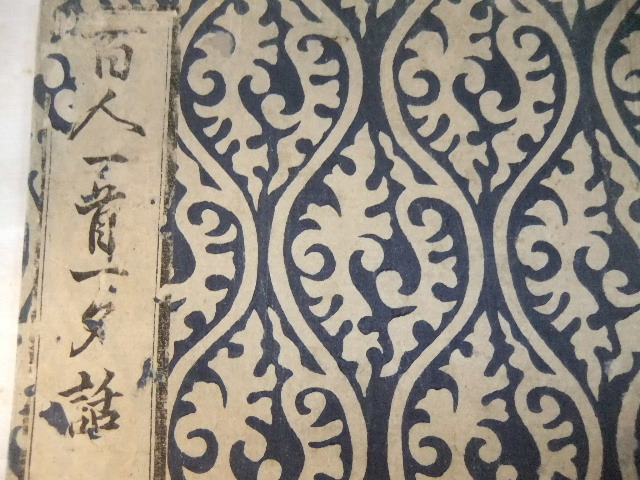 百人一首一夕話